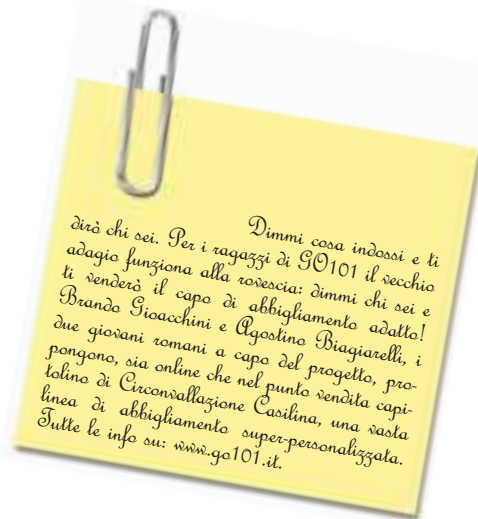 Dimmi cosa indossi e ti
dirò chi sei. Per i ragazzi di GO101 il vecchio
adagio funziona alla rovescia: dimmi chi sei e
ti venderò il capo di abbigliamento adatto!
Brando Gioacchini e Agostino Biagiarelli, i
due giovani romani a capo del progetto, pro-
pongono, sia online che nel punto vendita capi-
tolino di Circonvallazione Casilina, una vasta
linea di abbigliamento super-personalizzata.
Tutte le info su: www.go101.it.